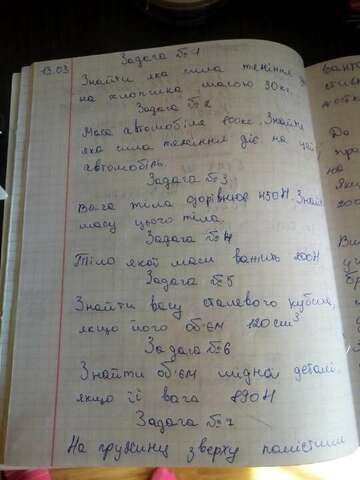 13.03
Задача №1
Знайти яка сила тяжіння
на хлопчика масою 30кг.
Задача №2
Маса автомобіля 800кг. Знайти
яка сила тяжіння діє на цей
автомобіль.
Задача №3
Вага тіла дорівнює 450Н. Знай
масу цього тіла.
Задача №4
Тіло якої маси важить 200Н
Задача №5
Знайти вагу сталевого кубика,
якщо його об'єм 120см³
Задача №6
Знайти об'єм мідної деталі,
якщо її вага 890Н
Задача №7
На пружину зверху помістили